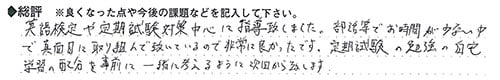 ◆総評 ※良くなった点や今後の課題などを記入して下さい。
英語検定や定期試験対策中心に指導致しました。部活等でお時間が少ない中
で真面目に取り組んで頂いているので非常に良かったです。定期試験の勉強の自宅
学習の配分を事前に一緒に考えるように次回から致します